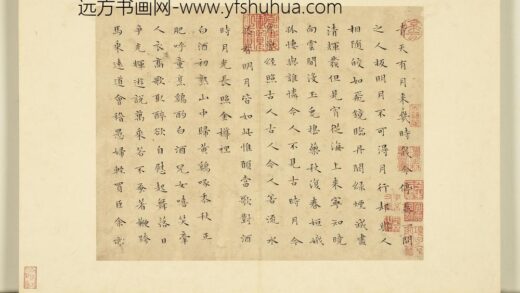 远方书画网-www.yfshuhua.com
青天有月來幾時我今停杯一問
之人攀明月不可得月行却與人
相隨皎如飛鏡臨丹闕綠煙滅盡
清輝發但見宵從海上來寧知曉
向雲間沒玉兔搗藥秋復春姮娥
孤棲與誰憐今人不見古時月今
月曾經照古人古人今人若流水
共看明月皆如此惟願當歌對酒
時月光長照金樽裡
白酒初熟山中歸黃鷄啄黍秋正
肥呼童烹鷄酌白酒兒女嬉笑牽
人衣高歌取醉欲自慰起舞落日
爭光輝遊說萬乘苦不早著鞭跨
馬遠道會稽愚婦輕買臣余亦